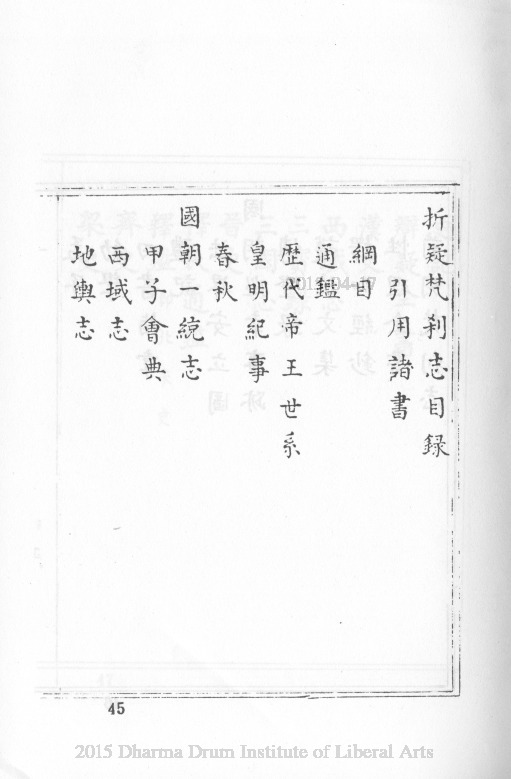 折疑梵刹志目録
引用諸書
綱目
通鑑
歴代帝王世系
皇明紀事
春秋
國朝一統志
甲子會典
西域志
地輿志
45
2015 Dharma Drum Institute of Liberal Arts